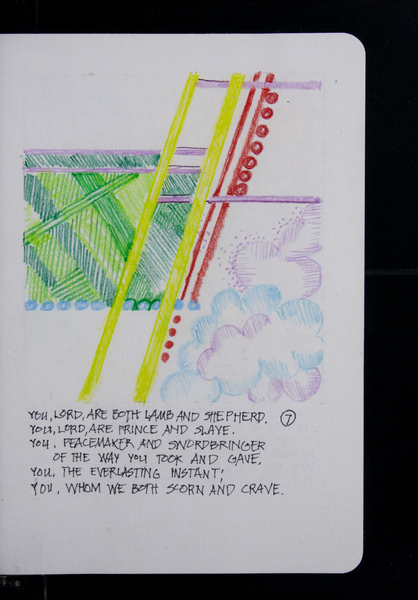 YOU, LORD, ARE BOTH LAMB AND SHEPHERD. 7
YOU, LORD, ARE PRINCE AND SLAVE.
YOU, PEACEMAKER AND SWORDBRINGER
OF THE WAY YOU TOOK AND GAVE.
YOU, THE EVERLASTING INSTANT;
YOU, WHOM WE BOTH SCORN AND CRAVE.